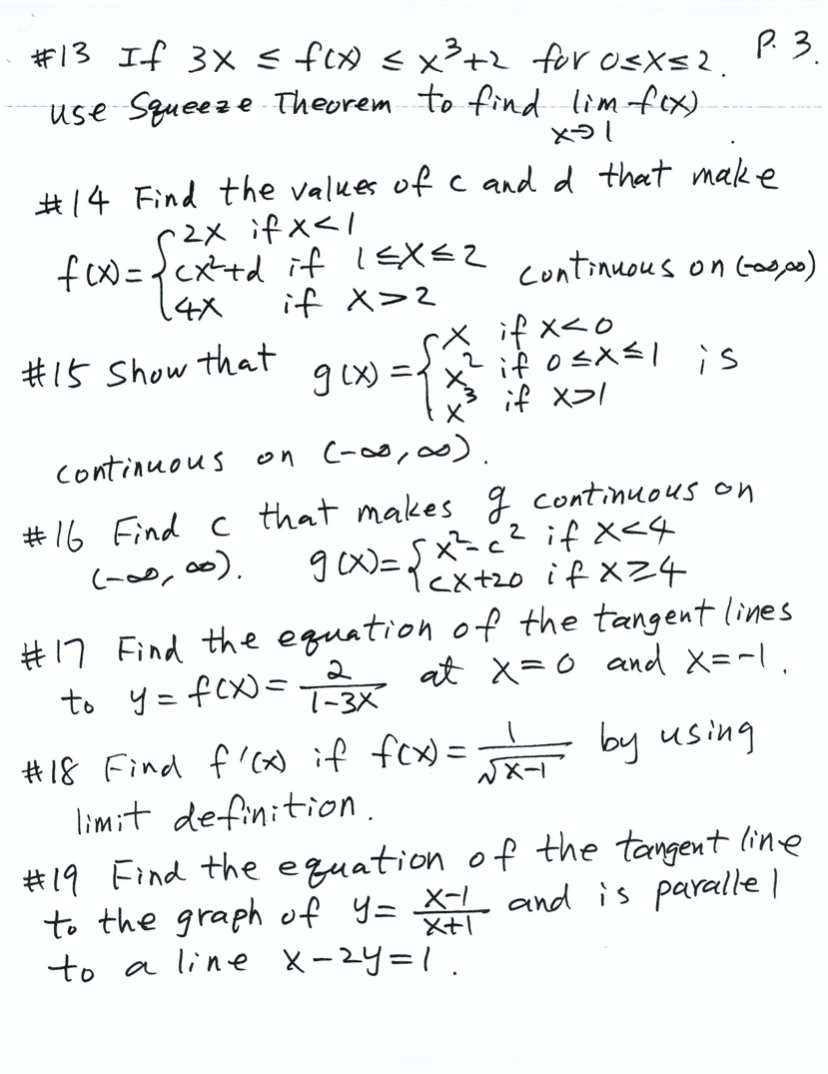 #13 If 3x ≤ f(x) ≤ x³+2 for 0≤x≤2. P. 3.
use Squeeze Theorem to find lim f(x)
x→1
#14 Find the values of c and d that make
f(x)= { 2x if x<1
cx²+d if 1≤x≤2 continuous on (-∞,∞)
4x if x>2
#15 Show that g(x) = { x if x<0
x² if 0≤x≤1 is
x³ if x>1
continuous on (-∞,∞).
#16 Find c that makes g continuous on
(-∞, ∞). g(x)= { x²-c² if x<4
cx+20 if x≥4
#17 Find the equation of the tangent lines
to y = f(x) = 2/(1-3x) at x=0 and x=-1.
#18 Find f'(x) if f(x) = 1/√(x-1) by using
limit definition.
#19 Find the equation of the tangent line
to the graph of y= (x-1)/(x+1) and is parallel
to a line x-2y=1.